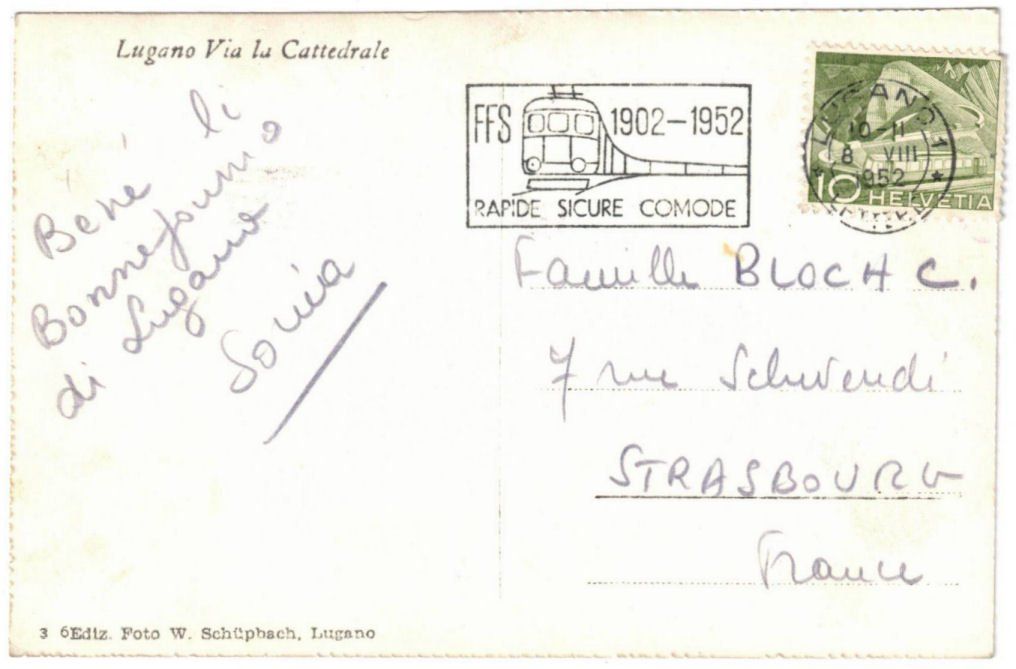 Lugano Via la Cattedrale
Bene li
Bonnejourno
di Lugano
Sonia
FFS 1902-1952
RAPIDE SICURE COMODE
LUGANO 1
10-11
8 VIII
1952
10 HELVETIA
Famille BLOCH C.
7 rue Schwendi
STRASBOURG
France
3 6Ediz. Foto W. Schüpbach, Lugano